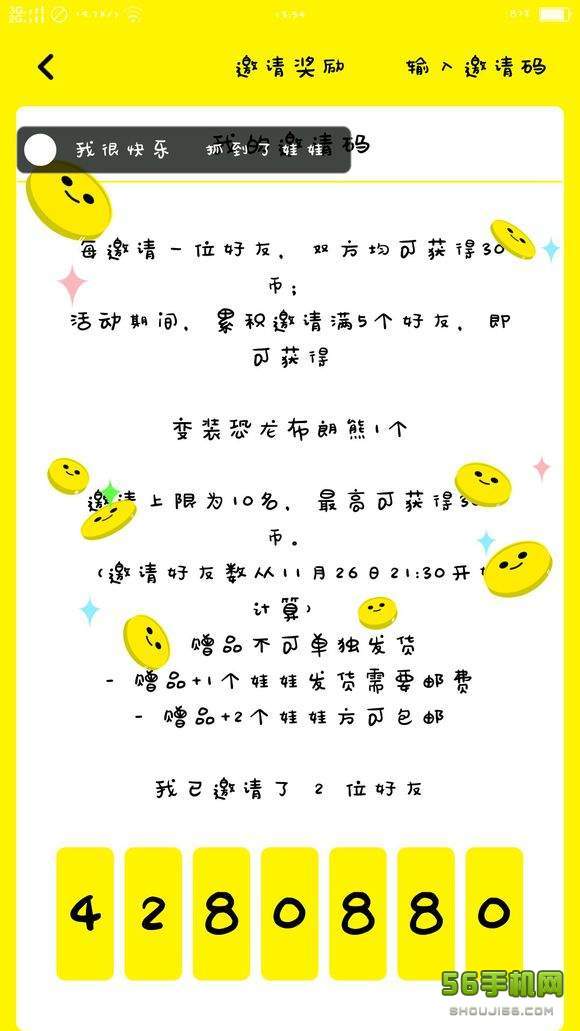 3G 2G 13:54 87%
邀请奖励 输入邀请码
我的邀请码
我很快乐 抓到了娃娃
每邀请一位好友，双方均可获得30
币；
活动期间，累积邀请满5个好友，即
可获得
变装恐龙布朗熊1个
邀请上限为10名，最高可获得3
币。
(邀请好友数从11月26日21:30开始
计算)
赠品不可单独发货
- 赠品+1个娃娃发货需要邮费
- 赠品+2个娃娃方可包邮
我已邀请了 2 位好友
4 2 8 0 8 8 0
56手机网
SHOUJI56.COM